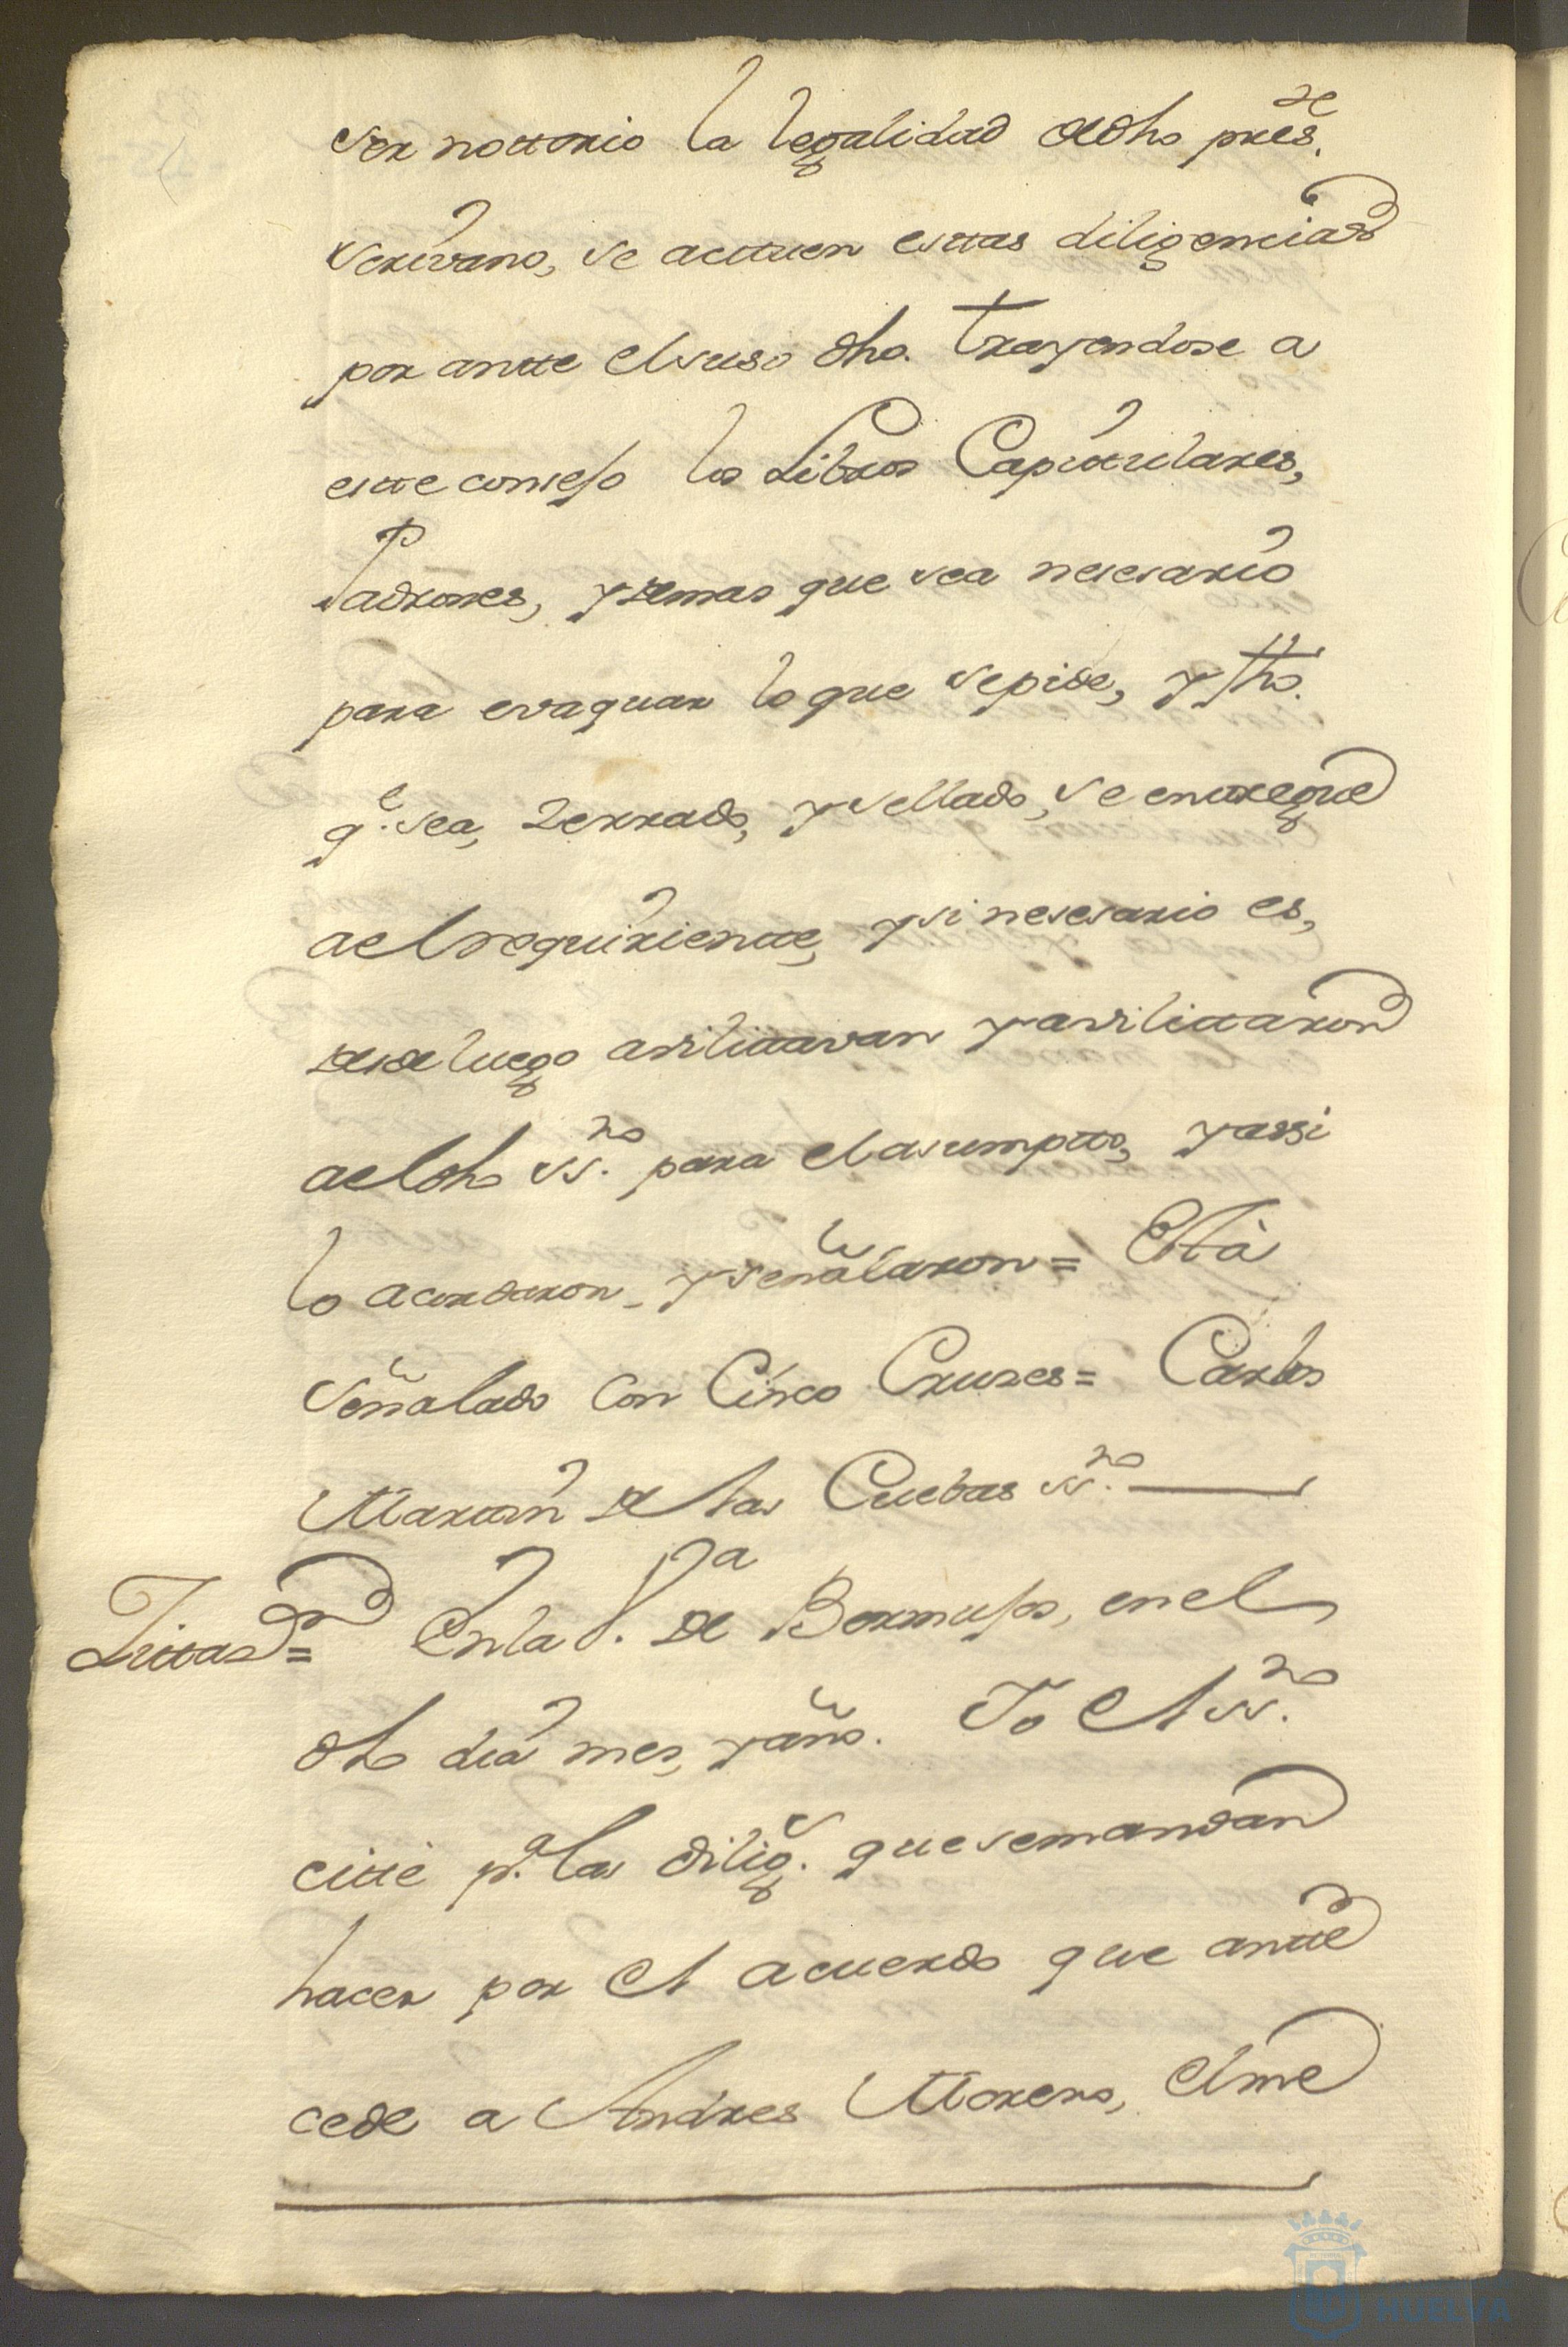 ser nottorio la legalidad de dho pres.te
scrivano, se acttuen esttas diligencias
por antte el suso dho. trayendose a
estte consejo los Libros Capittulares,
Padrones, y demas que sea nesesario
para evaquar lo que se pide, y fho.
q.e sea, zerrado, y sellado, se enttregue
a el requiriente, y si nesesario es,
desde luego avilittavan y avilittaron
a el dho ss.no para el asumptto, y assi
lo acordaron, y señalaron = Está
señalado con Cinco Cruzes = Carlos
Marttin de las Cuebas ss.no
Zittas = En la V.a de Bormujos, en el
dho dia mes, y año. Yo el ss.no
citté p.a las dilig.s que se mandan
hacer por el acuerdo que antte
cede a Andres Moreno, el me
HUELVA